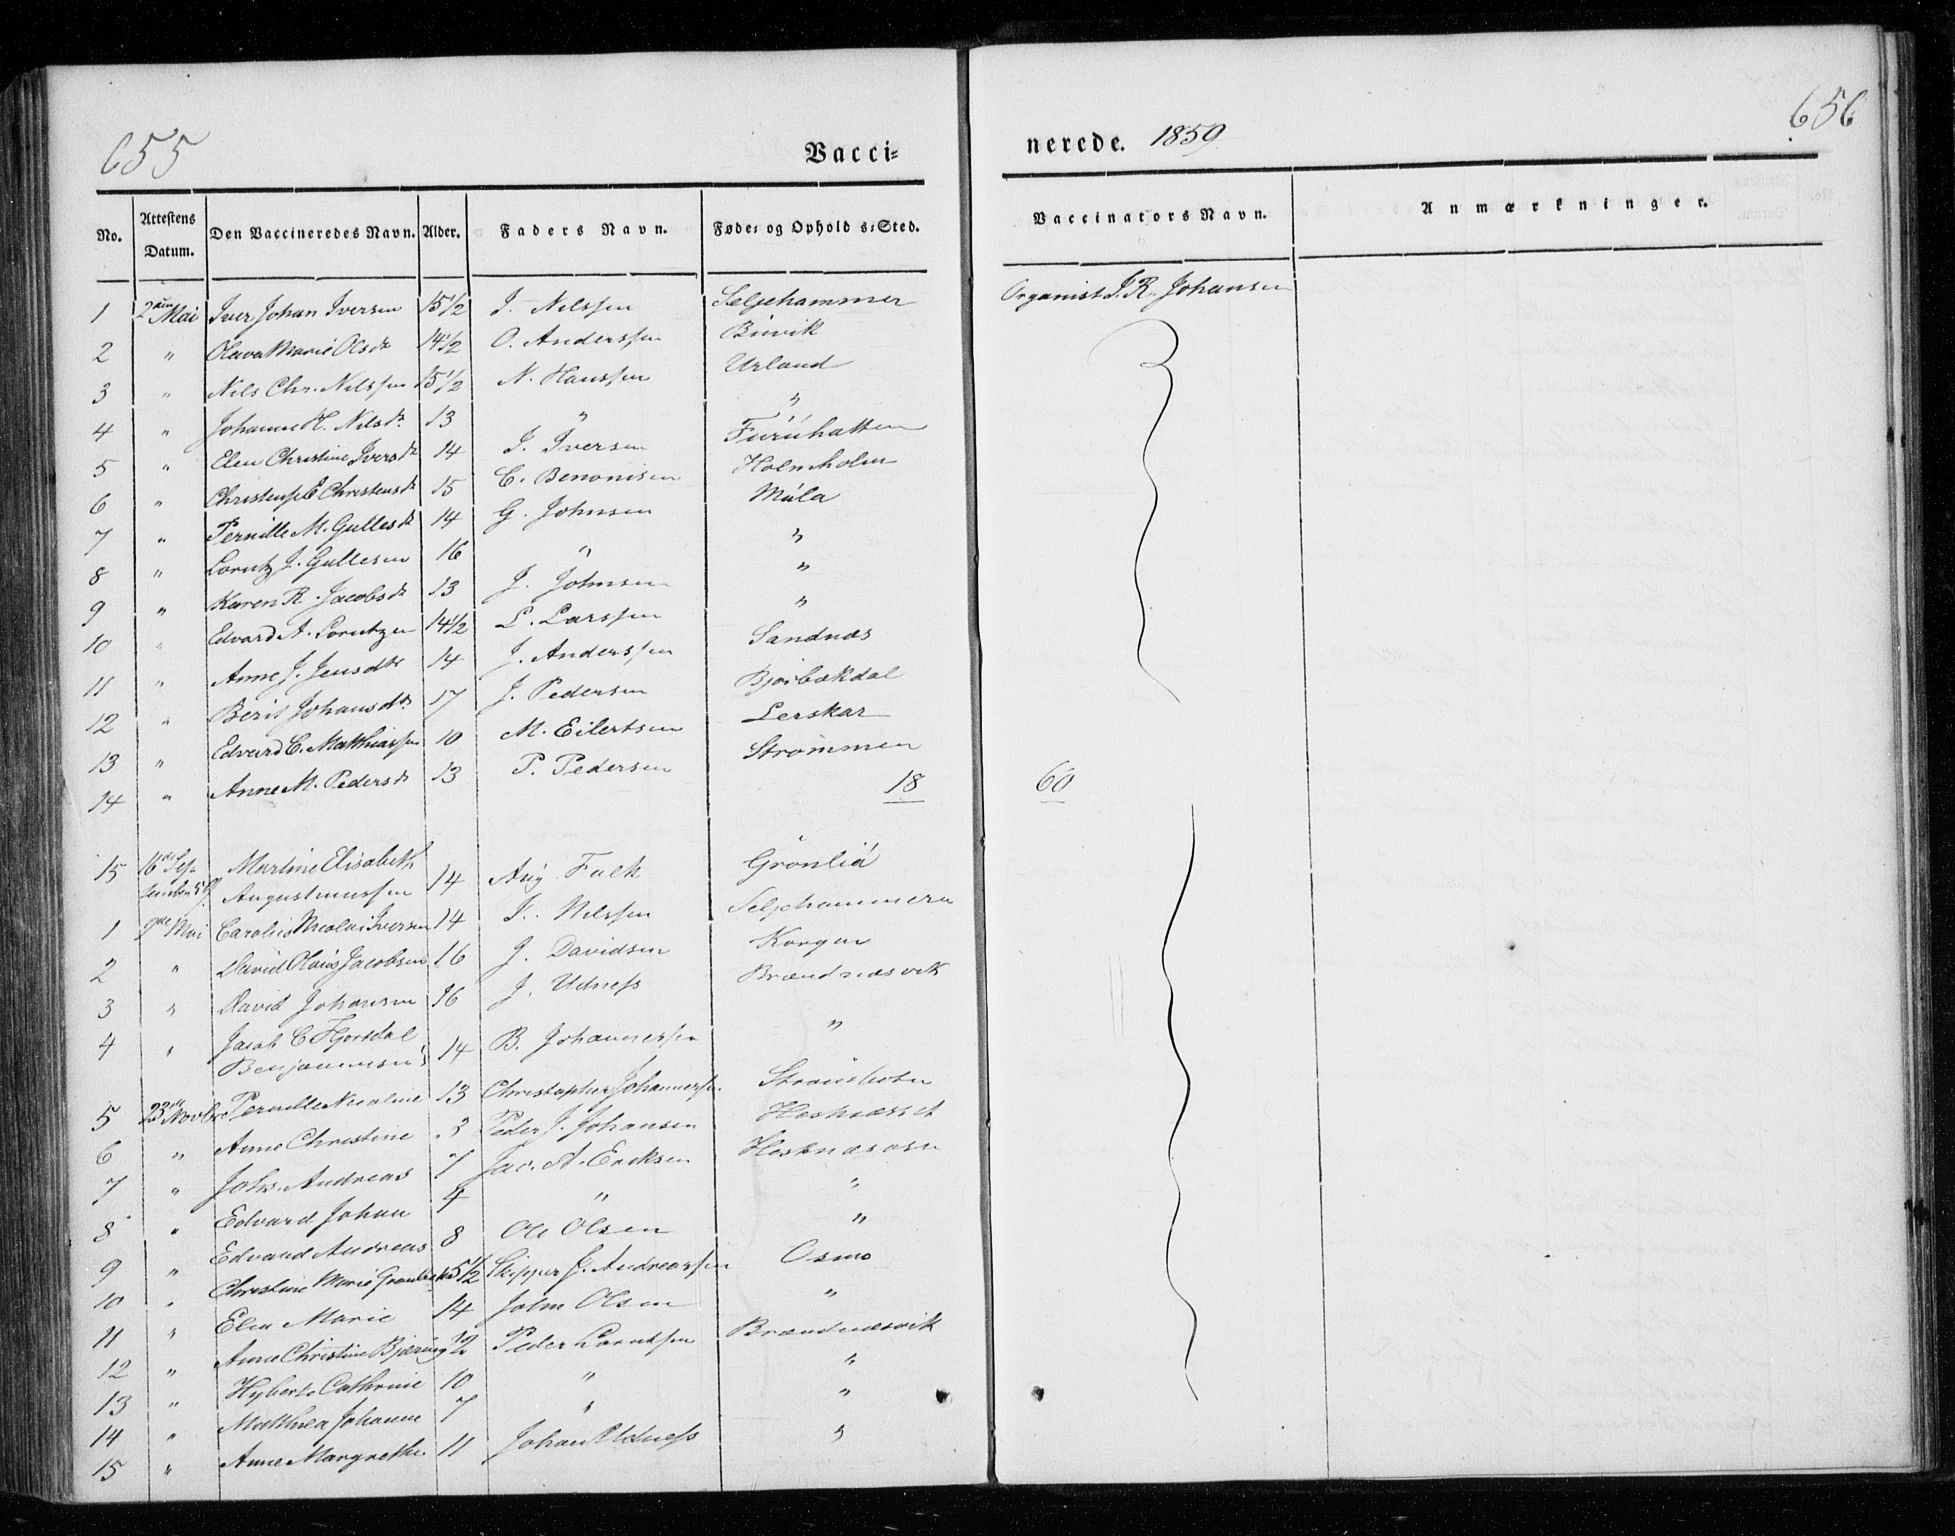 655
656
Vacci=
nerede. 1859
No. Attestens Datum. Den Vaccineredes Navn. Alder. Faders Navn. Føde- og Ophold s-Sted. Vaccinators Navn. Anmærkninger.
1 2den Mai Iver Johan Iversen 15 1/2 I. Nilssen Seljehammer Organist J. R. Johansen
2 " Olava Marie Olsdr 14 1/2 O. Anderssen
3 " Nils Chr. Nilssen 15 1/2 N. Hanssen Urland
4 " Johanne H. Nilsdr. 13 " "
5 " Elen Christine Iversdr 14 I. Iversen Furuhatten
6 " Christense E Christensdr 15 C. Benonisen Holmholm
7 " Pernille M. Gullesdr 14 G. Johnsen Mula
8 " Lorntz J. Gullesen 16 " "
9 " Karen R. Jacobsdr 13 J. Johnsen "
10 " Edvard A. Lorntzen 14 1/2 L. Larssen "
11 " Anne J. Jensdtr 14 J. Anderssen Sandnæs
12 " Berit Johansdr. 17 J. Pedersen Bjørbækdal
13 " Edvard C. Mathiassen 10 M. Eilertsen Lerskar
14 " Anne M. Pedersdr 13 P. Pedersen Strømmen
18 60
15 16de Martine Elisabeth
Augustinussen 14 Aug. Falk Grønlia
1 9de Mai Carolius Nicolai Iversen 14 I. Nilssen Seljehammeren
2 " David Olaus Jacobsen 16 J. Davidsen Korgen
3 " David Johansen 16 J. Udness Brændnæsvik
4 " Jacob C
Benjaminsen 14 B. Johannessen "
5 23de Novbr Pernille Nicoline 13 Christopher Johannessen Straumbotn
6 " Anne Christine 3 Peder J. Johansen Hestnæsset
7 " Johs. Andreas 7 Jac. A. Ericksen
8 " Edvard Johan 4 " "
9 " Edvard Andreas 8 Ole Olsen "
10 " Christine Marie 5 1/2 Skipper J. Andreassen Osmo
11 " Elen Marie 14 John Olsen "
12 " Anne Christine Bjæring 12 Peder Lorntsen Brændnæsvik
13 " Hyberts Cathrine 10 " "
14 " Matthea Johanne 7 " "
15 " Anne Margrethe 11 Johan Udness "